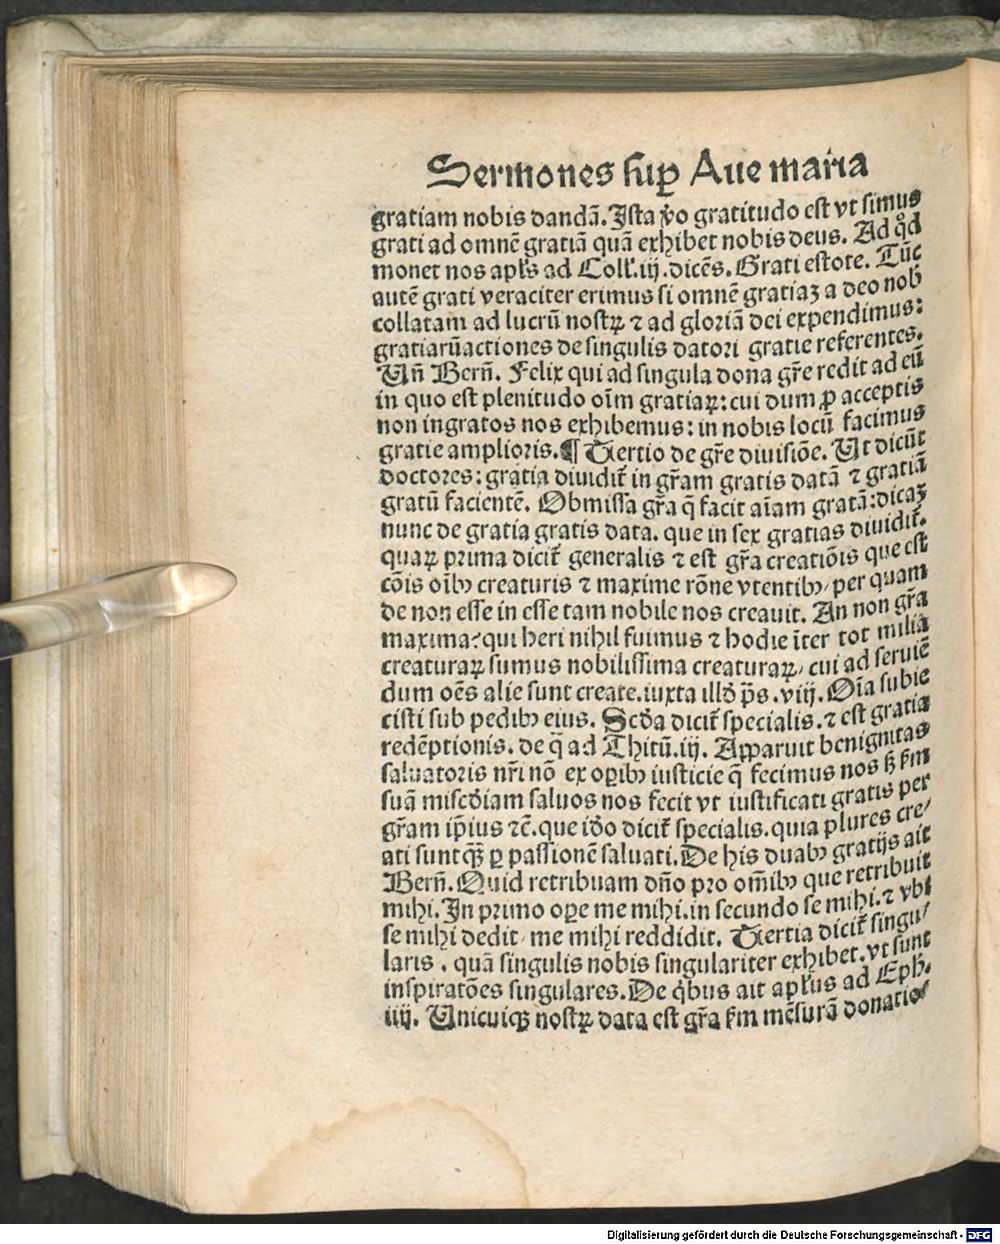 Sermones suꝑ Aue maria
gratiam nobis dandā. Ista ṽo gratitudo est vt simus
grati ad omnē gratiā quā exhibet nobis deus. Ad qd̓
monet nos apl̓s ad Coll̓. iij. dicēs. Grati estote. Tūc
autē grati veraciter erimus si omnē gratiaꝫ a deo nob̓
collatam ad lucrū nostꝝ ⁊ ad gloriā dei expendimus:
gratiarūactiones de singulis datori gratie referentes.
Vn̄ Bern̄. Felix qui ad singula dona gr̄e redit ad eū
in quo est plenitudo oīm gratiaꝝ: cui dum ꝓ acceptis
non ingratos nos exhibemus: in nobis locū facimus
gratie amplioris. ¶ Tertio de gr̄e diuisiōe. Vt dicūt
doctores: gratia diuidit̄ in gr̄am gratis datā ⁊ gratiā
gratū facientē. Obmissa gr̄a q̄ facit aīam gratā: dicaꝫ
nunc de gratia gratis data. que in sex gratias diuidit̄.
quaꝝ prima dicit̄ generalis ⁊ est gr̄a creatiōis que est
cōis oībꝰ creaturis ⁊ maxime rōne vtentibꝰ / per quam
de non esse in esse tam nobile nos creauit. An non gr̄a
maxima? qui heri nihil fuimus ⁊ hodie īter tot milia
creaturaꝝ sumus nobilissima creaturaꝝ / cui ad seruiē
dum oēs alie sunt create. iuxta illd̓ ps̄. viij. Oīa subie
cisti sub pedibꝰ eius. Scd̓a dicit̄ specialis. ⁊ est gratia
redēptionis. de q̄ ad Thitū. iij. Apparuit benignitas
saluatoris nr̄i nō ex oꝑibꝰ iusticie q̄ fecimus nos sꝫ ẜm
suā miscd̓iam saluos nos fecit vt iustificati gratis per
gr̄am ip̄ius ⁊c̄. que id̓o dicit̄ specialis. quia plures cre/
ati sunt qꝫ̄ ꝑ passionē saluati. De his duabꝰ gratijs ait
Bern̄. Quid retribuam dn̄o pro om̄ibꝰ que retribuit
mihi. In primo oꝑe me mihi. in secundo se mihi. ⁊ vbi
se mihi dedit / me mihi reddidit. Tertia dicit̄ singu/
laris. quā singulis nobis singulariter exhibet. vt sunt
inspiratōes singulares. De qͥbus ait apl̓us ad Eph̓.
iiij. Vnicuiqꝫ nostꝝ data est gr̄a ẜm mēsurā donatio/
Digitalisierung gefördert durch die Deutsche Forschungsgemeinschaft - DFG